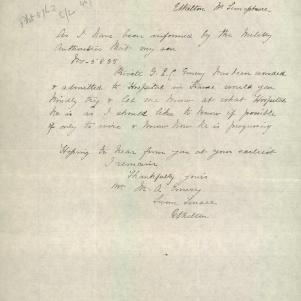 As I have been informed by the Military
Authorities that my son
No - 5835
Private G. E. C. Emery has been wounded
& admitted to Hospital in France would you
kindly try & let me know at what Hospital
he is as I should like to know if possible
if only to write & know how he is progressing
Hoping to hear from you at your earliest
I remain
Thankfully yours
Mr M. A. Emery